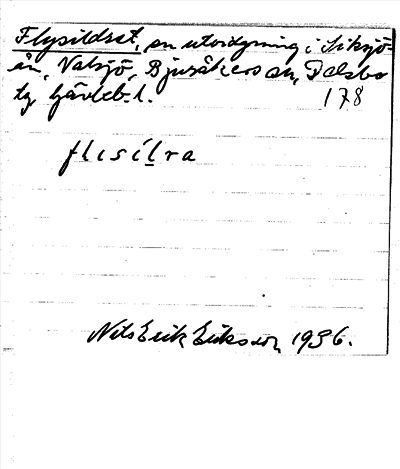 Flysildrat, en utvidgning i Siksjö-
ån, Valsjö, Bjuråkers sn,
tg Gävleb. l. 178
flisílra
Nils Erik Eriksson 1936.